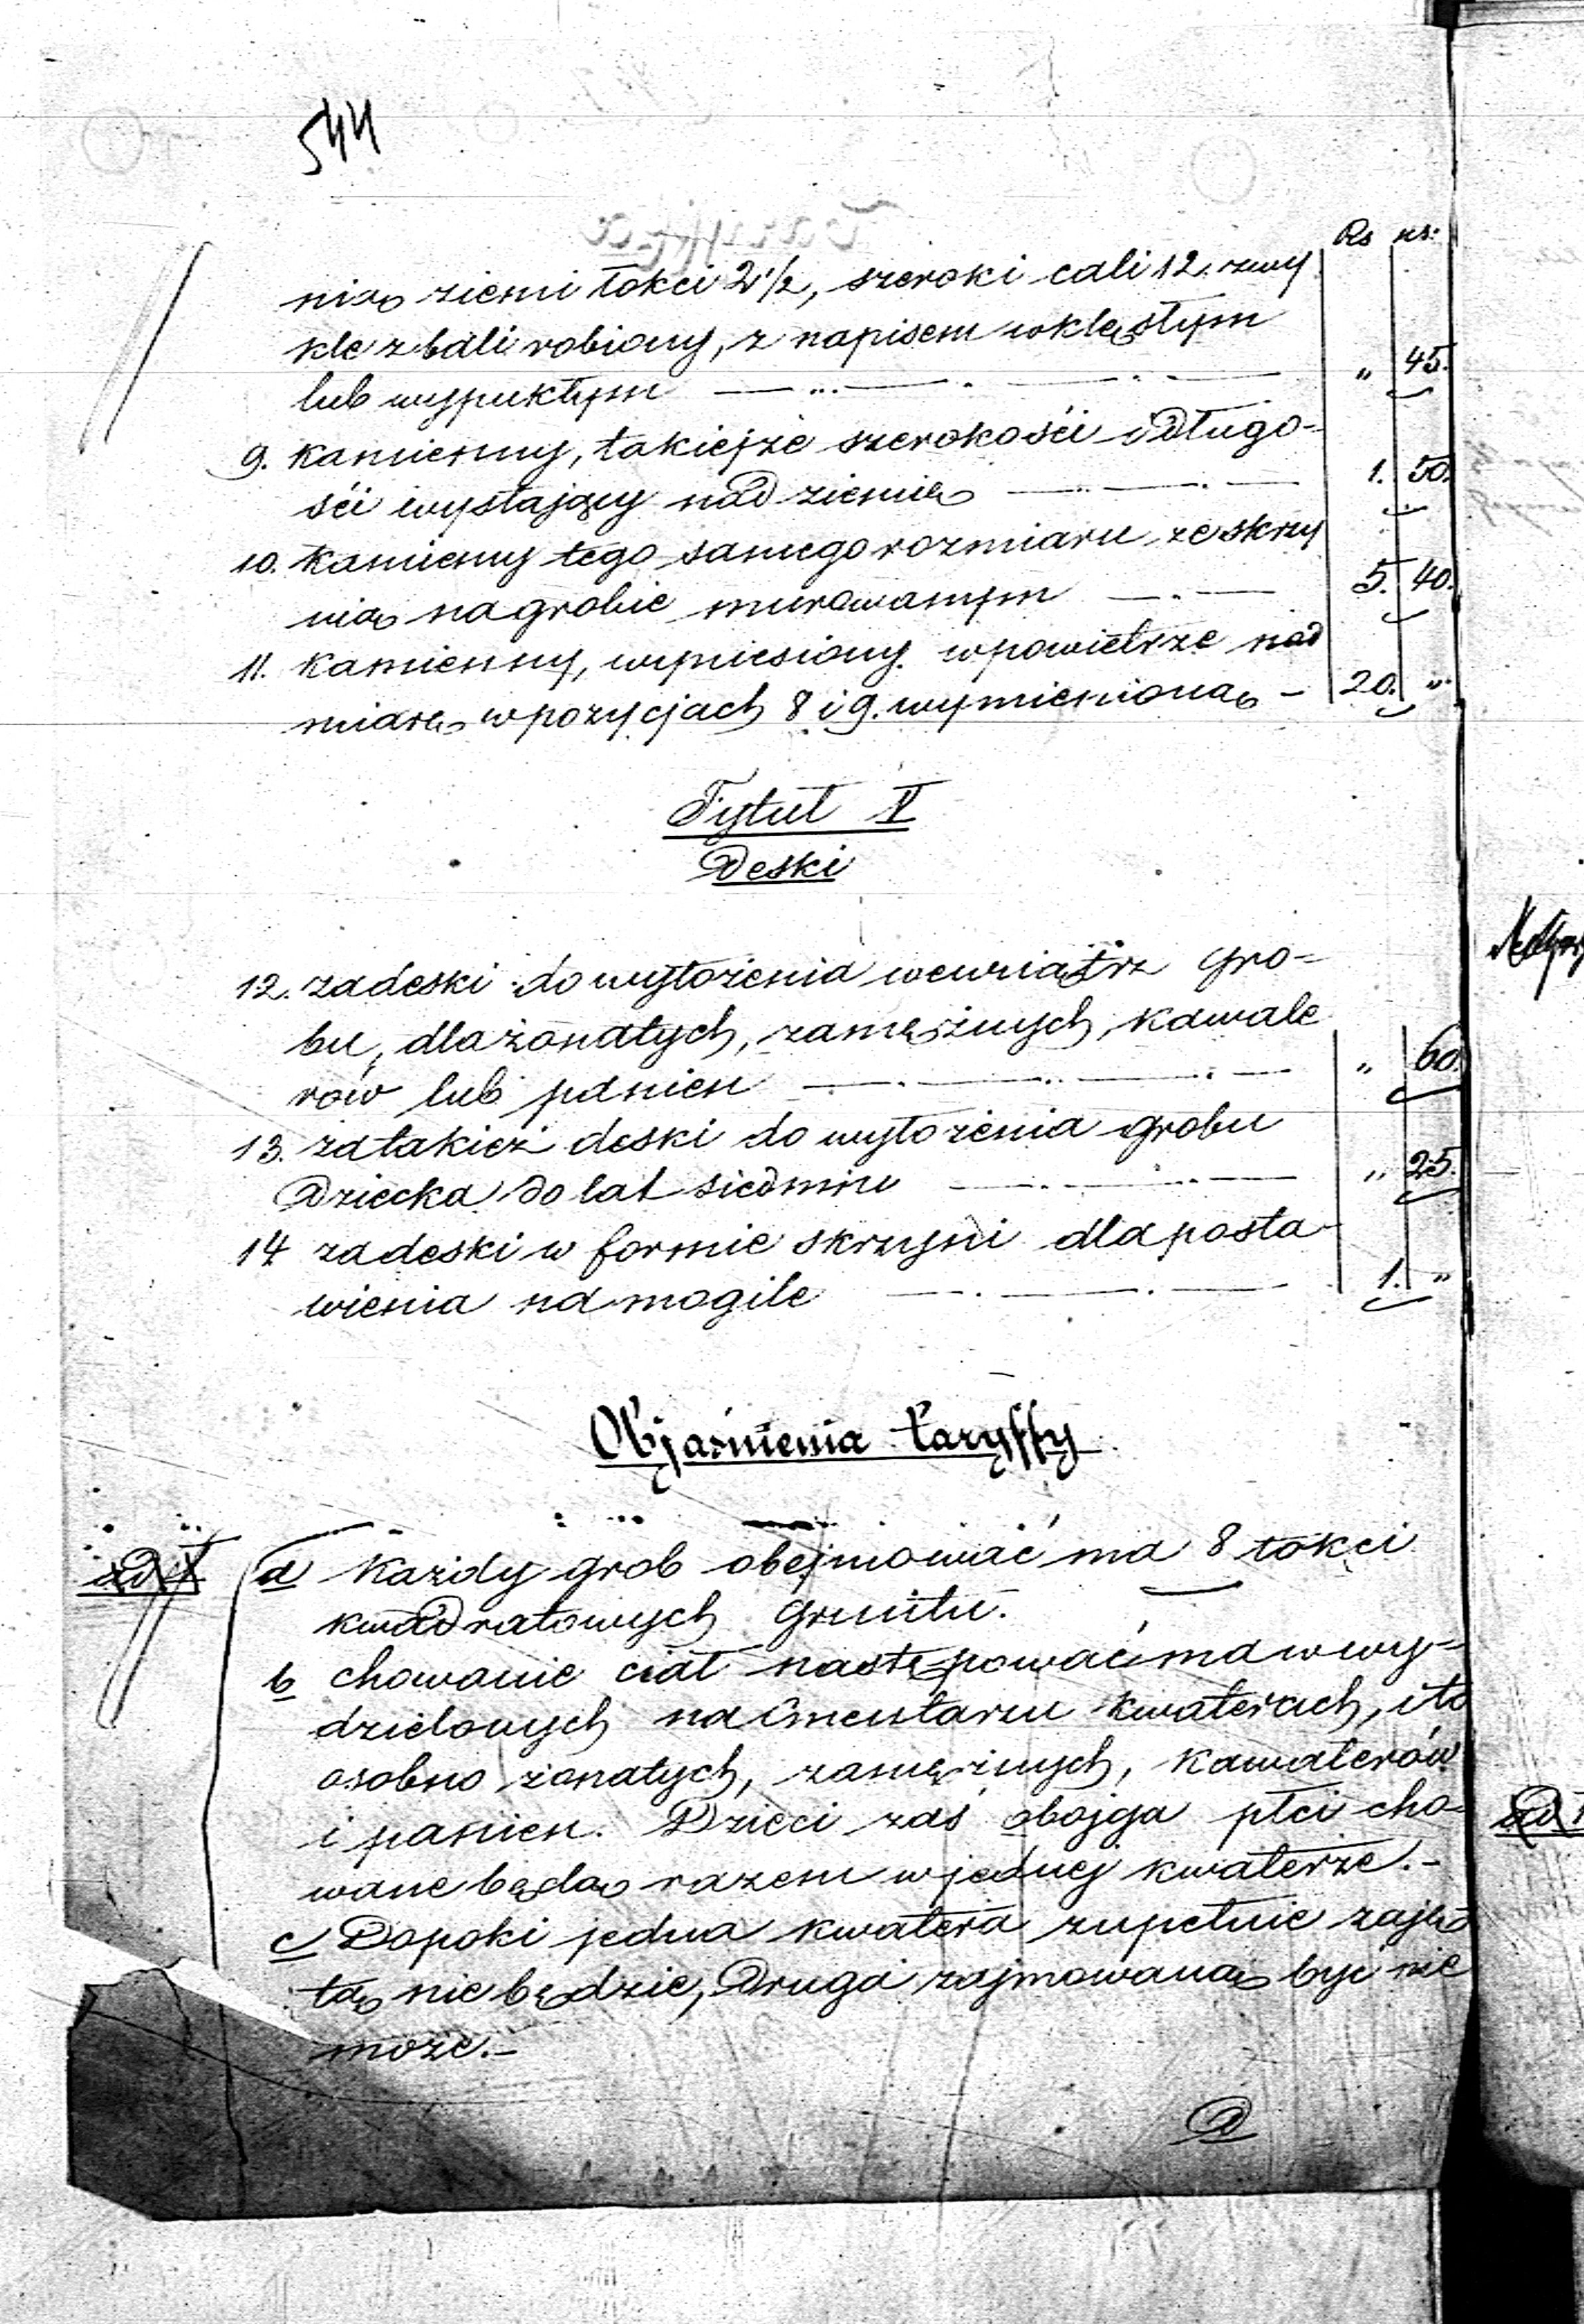 544
Rs ks:
nią ziemi łokci 2 1/2, szeroki cali 12. zwy
kle z bali robiony, z napisem wklęsłym
lub wypukłym — „ 45.
9. Kamienny, takiejże szerokości i długo-
ści wystający nad ziemię — 1. 50.
10. Kamienny tego samego rozmiaru ze skrzy
nią na grobie murowanym — 5. 40.
11. Kamienny, wyniesiony w powietrze nad
miarę w pozycjach 8 i 9. wymienioną — 20. „
Tytuł V
Deski
12. za deski do wyłożenia wewnątrz gro-
bu, dla żonatych, zamężnych, kawale
rów lub panien — „ 60.
13. za takież deski do wyłożenia grobu
Dziecka do lat siedmiu — „ 25.
14 za deski w formie skrzyni dla posta-
wienia na mogile — 1. „
Objaśnienia taryffy
ad I
a Każdy grob obejmować ma 8 łokci
kwadratowych gruntu.
b chowanie ciał następować ma w wy-
dzielonych na Cmentarzu kwaterach, i to
osobno żonatych, zamężnych, Kawalerów
i panien. Dzieci zaś obojga płci cho-
wane będą razem w jednej kwaterze.-
c Dopoki jedna kwatera zupełnie zaję-
tą nie będzie, Druga zajmowaną być nie
może.-
D